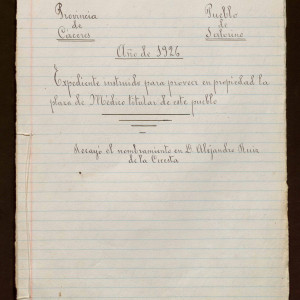 Provincia
de
Cáceres
Pueblo
de
Año de 1926
Expediente instruido para proveer en propiedad la
plaza de Médico titular de este pueblo
Recayó el nombramiento en D. Alejandro Ruiz
de la